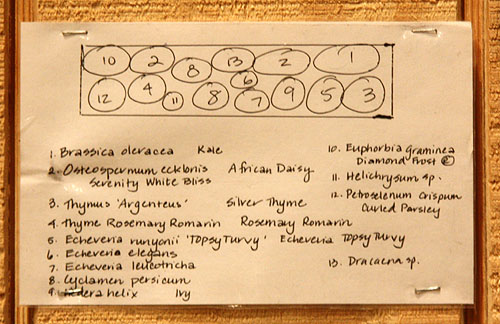 10 2 8 13 2 1
12 4 11 8 6 7 9 5 3
1. Brassica oleracea Kale
2. Osteospermum ecklonis African Daisy
Serenity White Bliss
3. Thymus 'Argenteus' Silver Thyme
4. Thyme Rosemary Romarin Rosemary Romarin
5. Echeveria runyonii 'Topsy Turvy' Echeveria Topsy Turvy
6. Echeveria elegans
7. Echeveria leucotricha
8. Cyclamen persicum
9. Hedera helix Ivy
10. Euphorbia Graminea
Diamond Frost ©
11. Helichrysum sp.
12. Petroselenum Crispum
Curled Parsley
13. Dracaena sp.